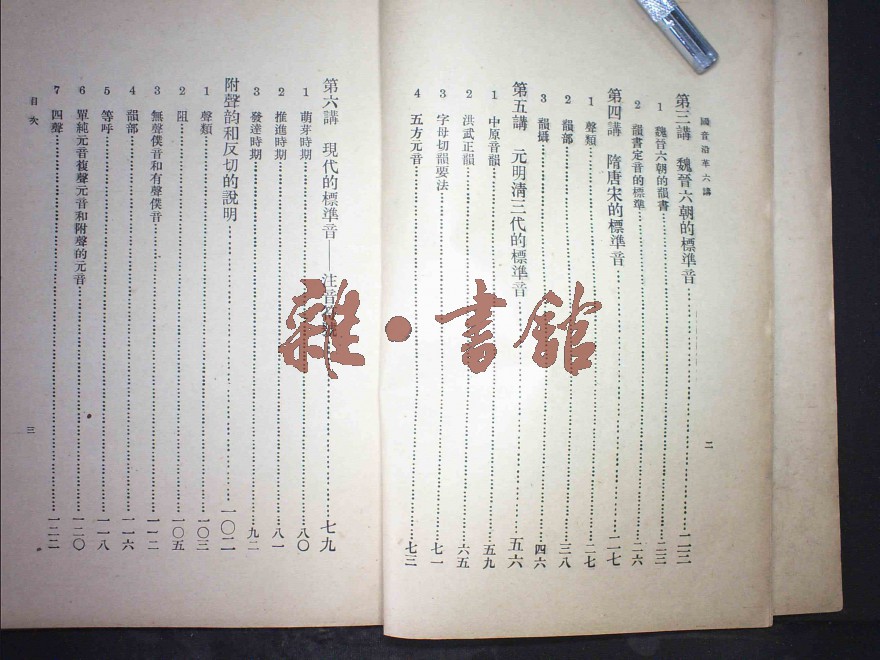 國音沿革六講
第三講 魏晉六朝的標準音……二三
1 魏晉六朝的韻書……二三
2 韻書定音的標準……二六
第四講 隋唐宋的標準音……二七
1 聲類……二七
2 韻部……三八
3 韻攝……四六
第五講 元明清三代的標準音……五六
1 中原音韻……五九
2 洪武正韻……六五
3 字母切韻要法……七一
4 五方元音……七三
二
第六講 現代的標準音——注音……七九
1 萌芽時期……八〇
2 推進時期……八一
3 發達時期……九二
附聲韵和反切的說明……一〇二
1 聲類……一〇三
2 阻……一〇五
3 無聲僕音和有聲僕音……一一二
4 韻部……一一六
5 等呼……一一八
6 單純元音複聲元音和附聲的元音……一二〇
7 四聲……一二二
目次
三
雜·書館